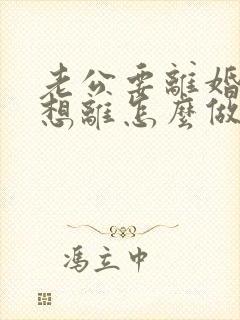 老公要離婚
想離怎麼做
馮立中